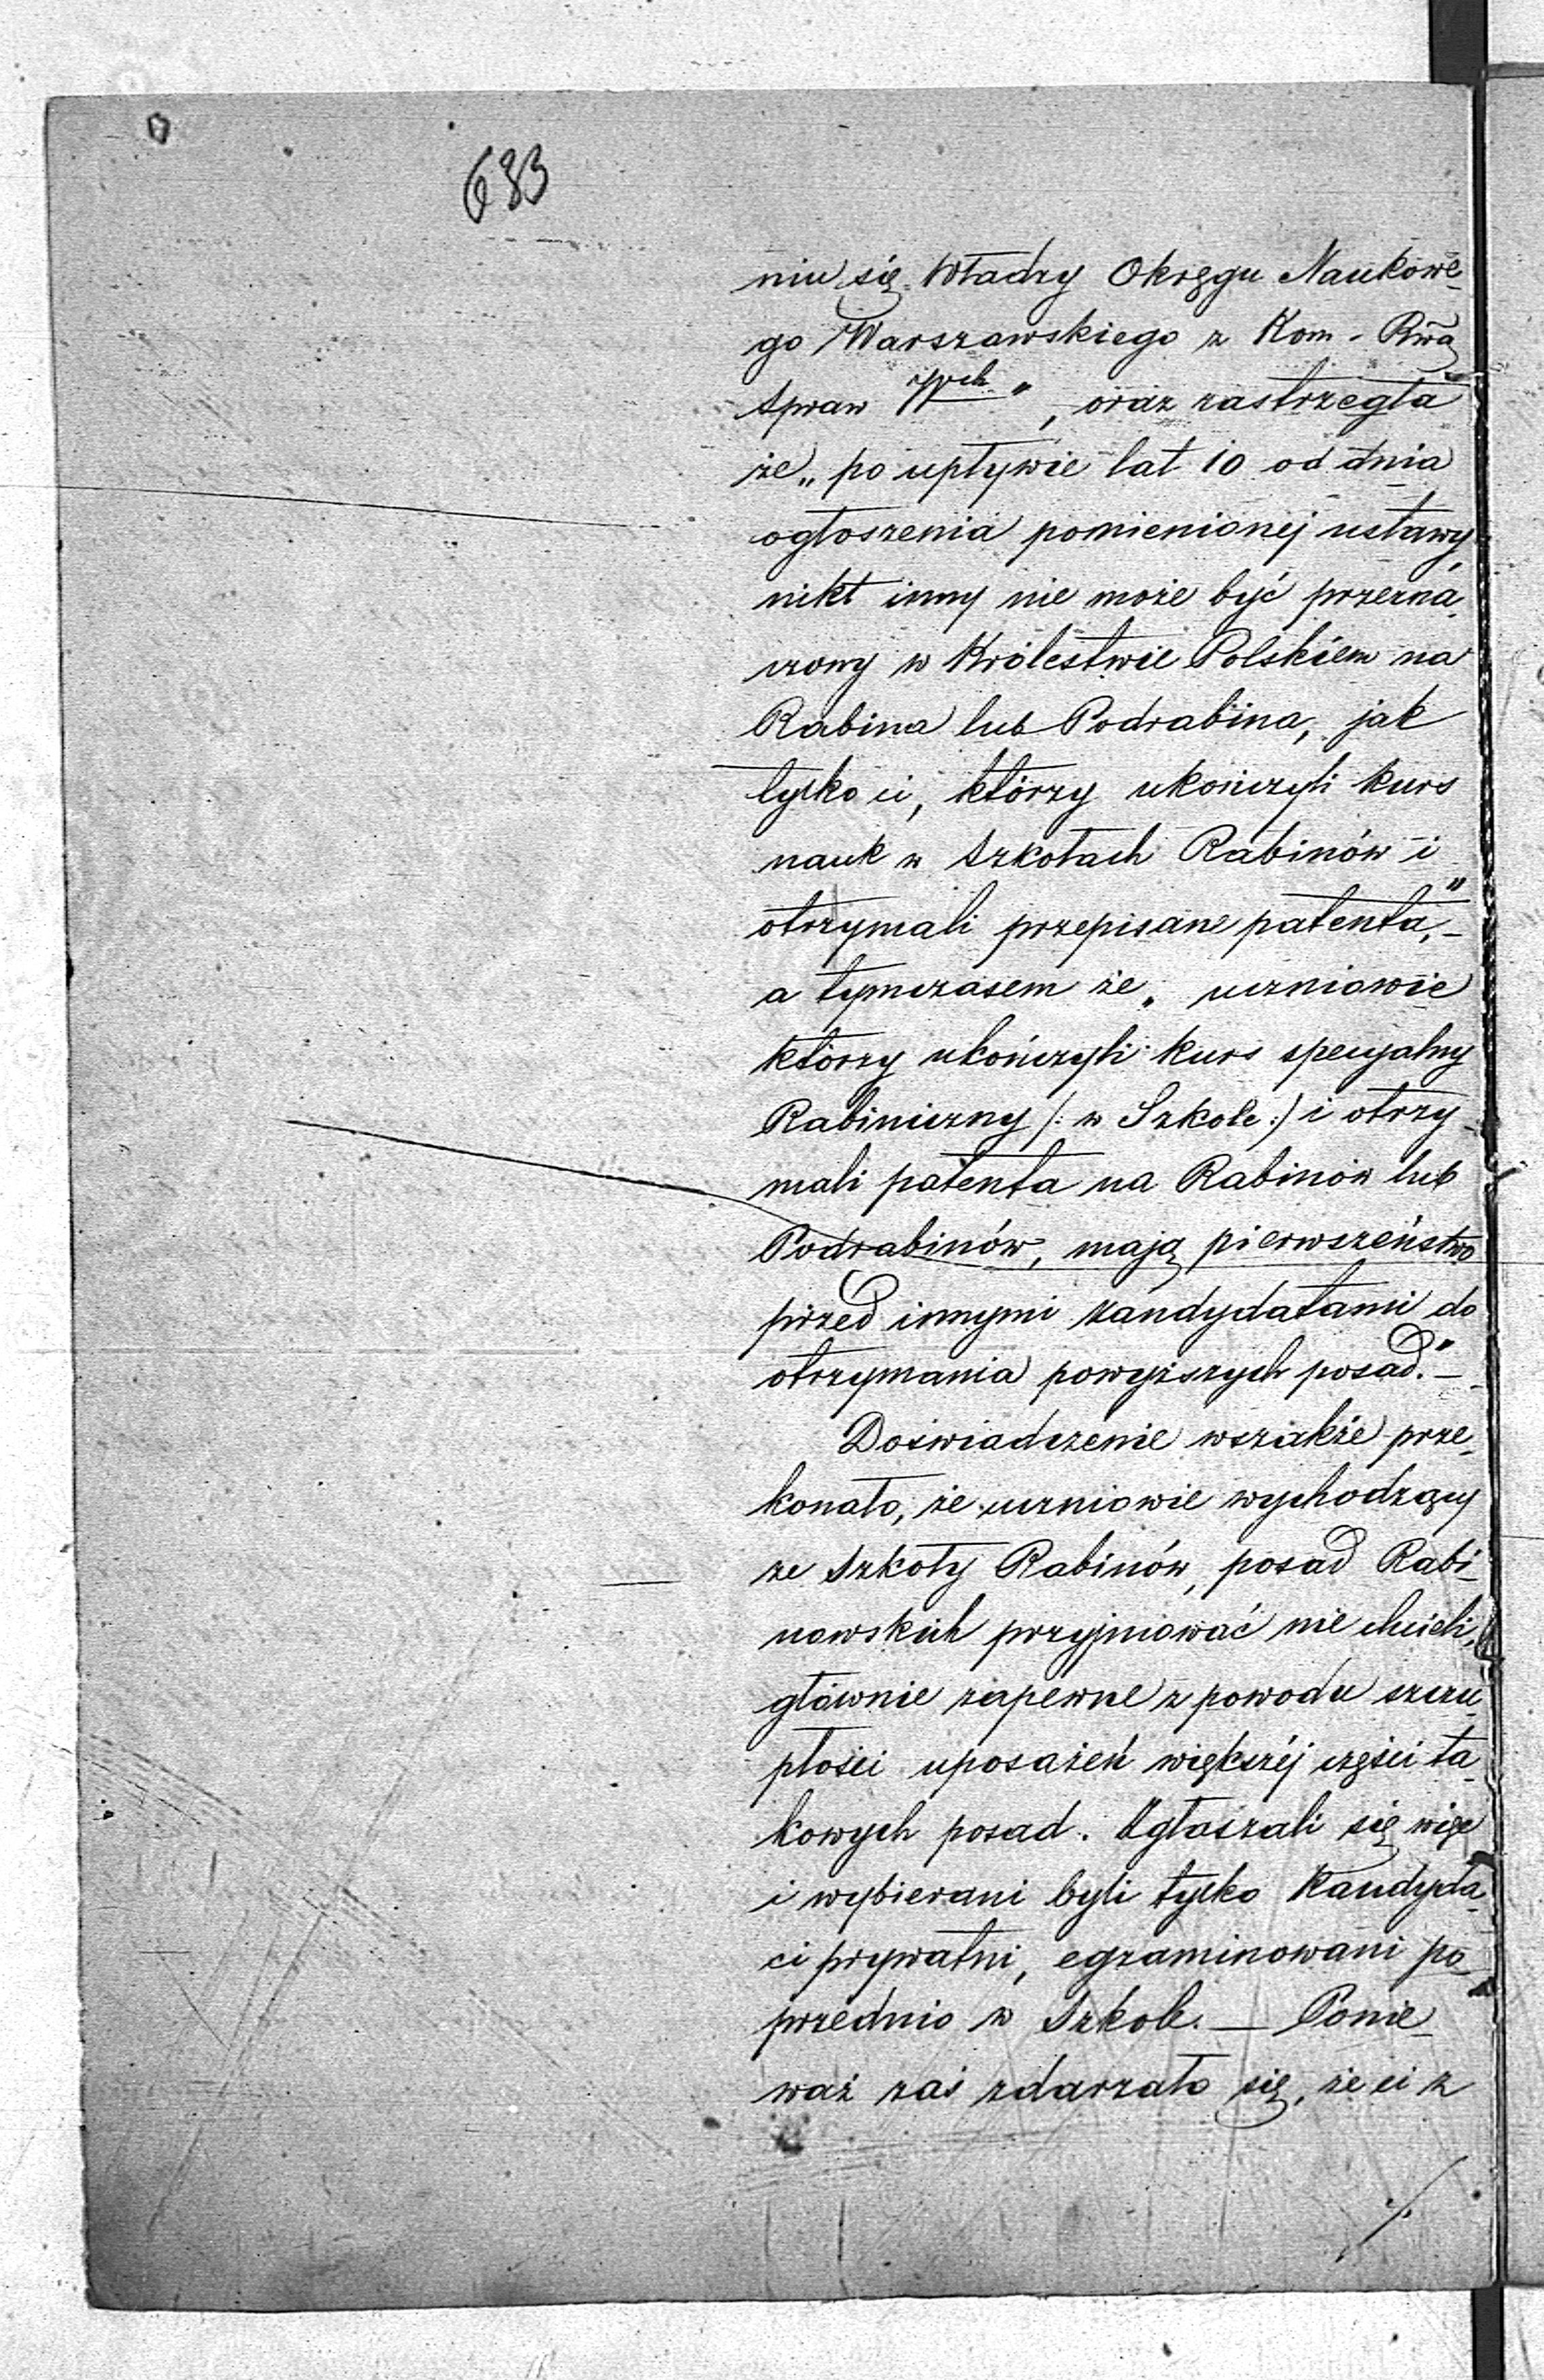 633
niu się Władzy Okręgu Naukowe-
go Warszawskiego z Kom. Rwą
Spraw Wych", oraz zastrzegła
że „po upływie lat 10 od dnia
ogłoszenia pomienionej ustawy,
nikt inny nie może być przezna-
czony w Królestwie Polskiem na
Rabina lub Podrabina, jak
tylko ci, którzy ukończyli kurs
nauk w Szkołach Rabinów i
otrzymali przepisane patenta," –
a tymczasem że „uczniowie
którzy ukończyli kurs specyalny
Rabiniczny /: w Szkole :/ i otrzy-
mali patenta na Rabinów lub
Podrabinów, mają pierwszeństwo
przed innymi kandydatami do
otrzymania powyższych posad." –
Doświadczenie wszakże prze-
konało, że uczniowie wychodzący
ze Szkoły Rabinów, posad Rabi-
nowskich przyjmować nie chcieli,
głównie zapewne z powodu szczu-
płości uposażeń większéj części ta-
kowych posad. Zgłaszali się więc
i wybierani byli tylko Kandyda-
ci prywatni, egzaminowani po-
przednio w Szkole. — Ponie-
waż zaś zdarzało się, że ci z
./.